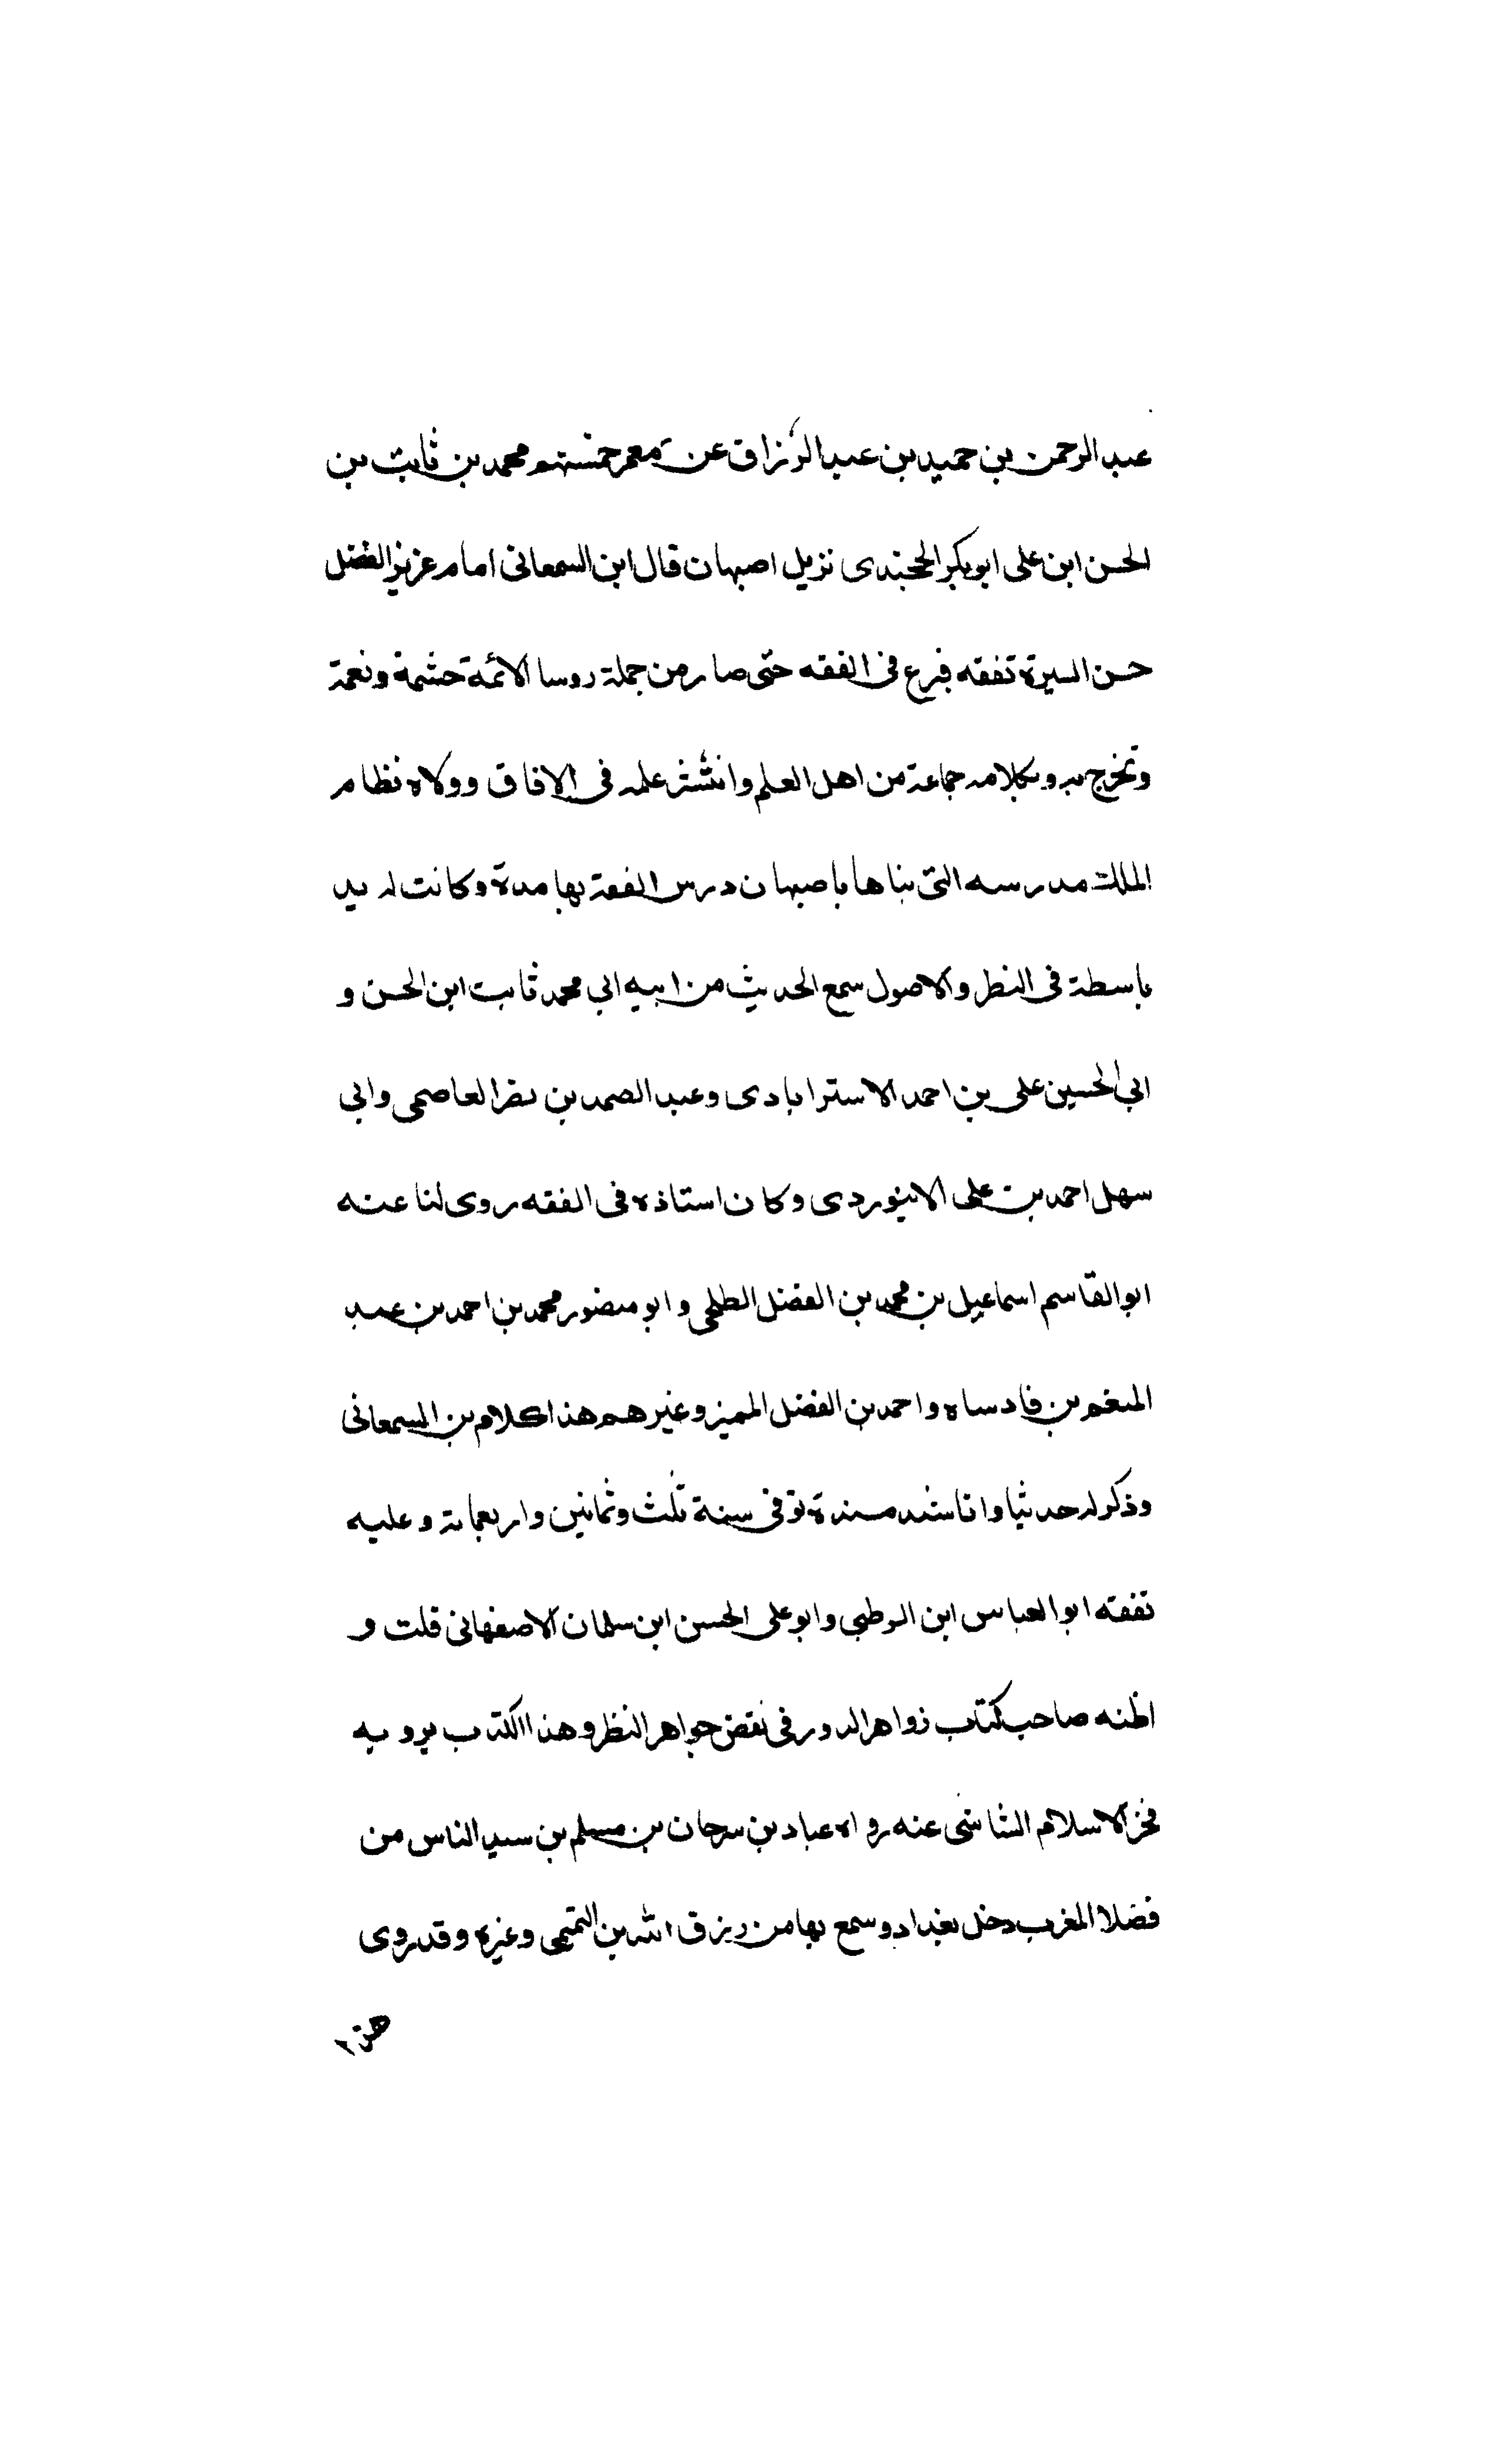 عبد الرحمن بن حميد بن عبد الرزاق عن معمر خمستهم محمد بن ثابت بن
الحسن ابن على ابو بكر الخجندى نزيل اصبهان قال ابن السمعانى امام عزيز الفضل
حسن السيرة تفقه فبرع فى الفقه حتى صار من جملة روسا الائمة حشمة ونعمة
وتخرج به وبكلامه جماعة من اهل العلم وانتشر علمه فى الافاق وولاه نظام
الملك مدرسه التى بناها باصبهان درس الفقه بها مدة وكانت له يد
باسطة فى النظر والاصول سمع الحديث من ابيه ابي محمد ثابت ابن الحسن و
ابي الحسين على بن احمد الاسترابادى وعبد الصمد بن نصر العاصمى وابي
سهل احمد بن على الابيوردى وكان استاذه فى الفقه روى لنا عنه
ابو القاسم اسماعيل بن محمد بن الفضل الطلحى وابو منصور محمد بن احمد بن عبد
المنعم بن فادساه واحمد بن الفضل المميز وغيرهم هذا كلام بن السمعانى
وذكر له حديثا واناشد مسندة توفى سنة ثلث وثمانين واربعماية وعليه
تفقه ابو العباس ابن الرطبي وابو على الحسن ابن سلمان الاصفهانى قلت و
اظنه صاحب كتاب زواهر الدور فى نقض جواهر النظر وهذا الكتب يرويه
فخر الاسلام الشاشى عنه رواه عباد بن سرحان بن مسلم بن سيد الناس من
فضلا المغرب دخل بغداد وسمع بها من رزق الله بن التميمى وغيره وقد روى
هذا